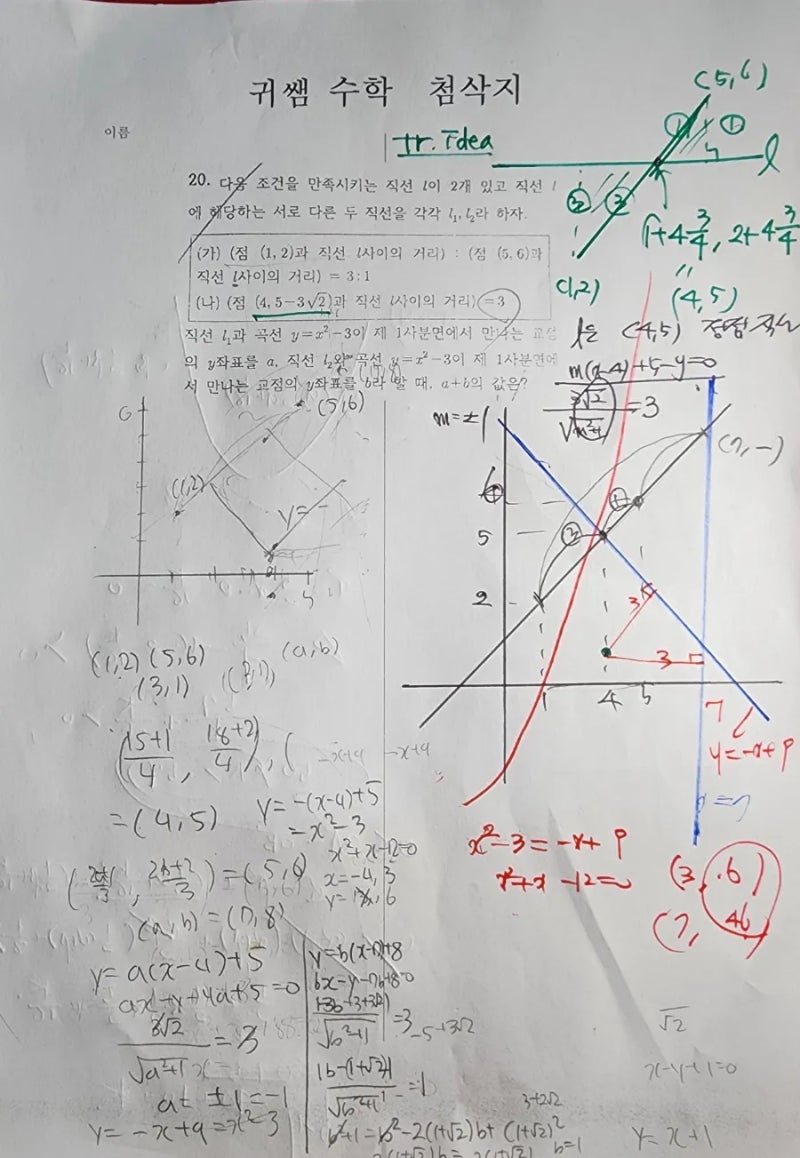 귀쌤 수학 첨삭지
이름
tr. Idea
(5,6)
①
①
l
③
③
(1,2)
1+4·3/4, 2+4·3/4
〃
(4,5)
20. 다음 조건을 만족시키는 직선 l이 2개 있고 직선 l
에 해당하는 서로 다른 두 직선을 각각 l₁, l₂라 하자.
(가) (점 (1, 2)과 직선 l사이의 거리) : (점 (5, 6)과
직선 l사이의 거리) = 3:1
(나) (점 (4, 5-3√2)과 직선 l사이의 거리) = 3
직선 l₁과 곡선 y=x²-3이 제 1사분면에서 만나는 교점
의 y좌표를 a, 직선 l₂와 곡선 y=x²-3이 제 1사분면에
서 만나는 교점의 y좌표를 b라 할 때, a+b의 값은?
l은 (4,5) 정점 직선
m(x-4)+5-y=0
3√2/√m²+1 = 3
m=±1
6
(5,6)
(1,2)
y=
(7, -)
5
③
①
2
3
3
1 4 5 7
y=-x+9
x=7
(1,2) (5,6) (a,b)
(3,1)
(15+1/4, 18+2/4), (
-x+9
-x+9
=(4,5)
y=-(x-4)+5
=x²-3
x²+x-12=0
x=-4, 3
(, 2b+2/3)=(5,6)
(a,b)=(7,8)
y=a(x-4)+5
3√2/√a²+1 = 3
a=±1=-1
y=-x+9=x²-3
y=b(x-7)+8
bx-y-7b+8=0
=3
-5+3√2
|b-(1+√2)|/√b²+1 =1
3+2√2
b²+1=b²-2(1+√2)b+(1+√2)²
b=1
x²-3=-x+9
x²+x-12=0
(3, 6)
(7, 46)
√2
x-y+1=0
y=x+1